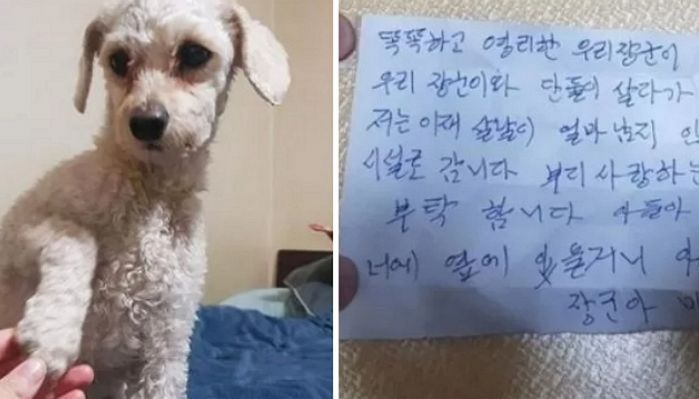 똑똑하고 영리한 우리장군이
우리 장군이와 단둘이 살다가
저는 이제 살날이 얼마남지
시설로 갑니다 부디 사랑하는
부탁 합니다 아들아
너에 옆에 있을거니
장군아